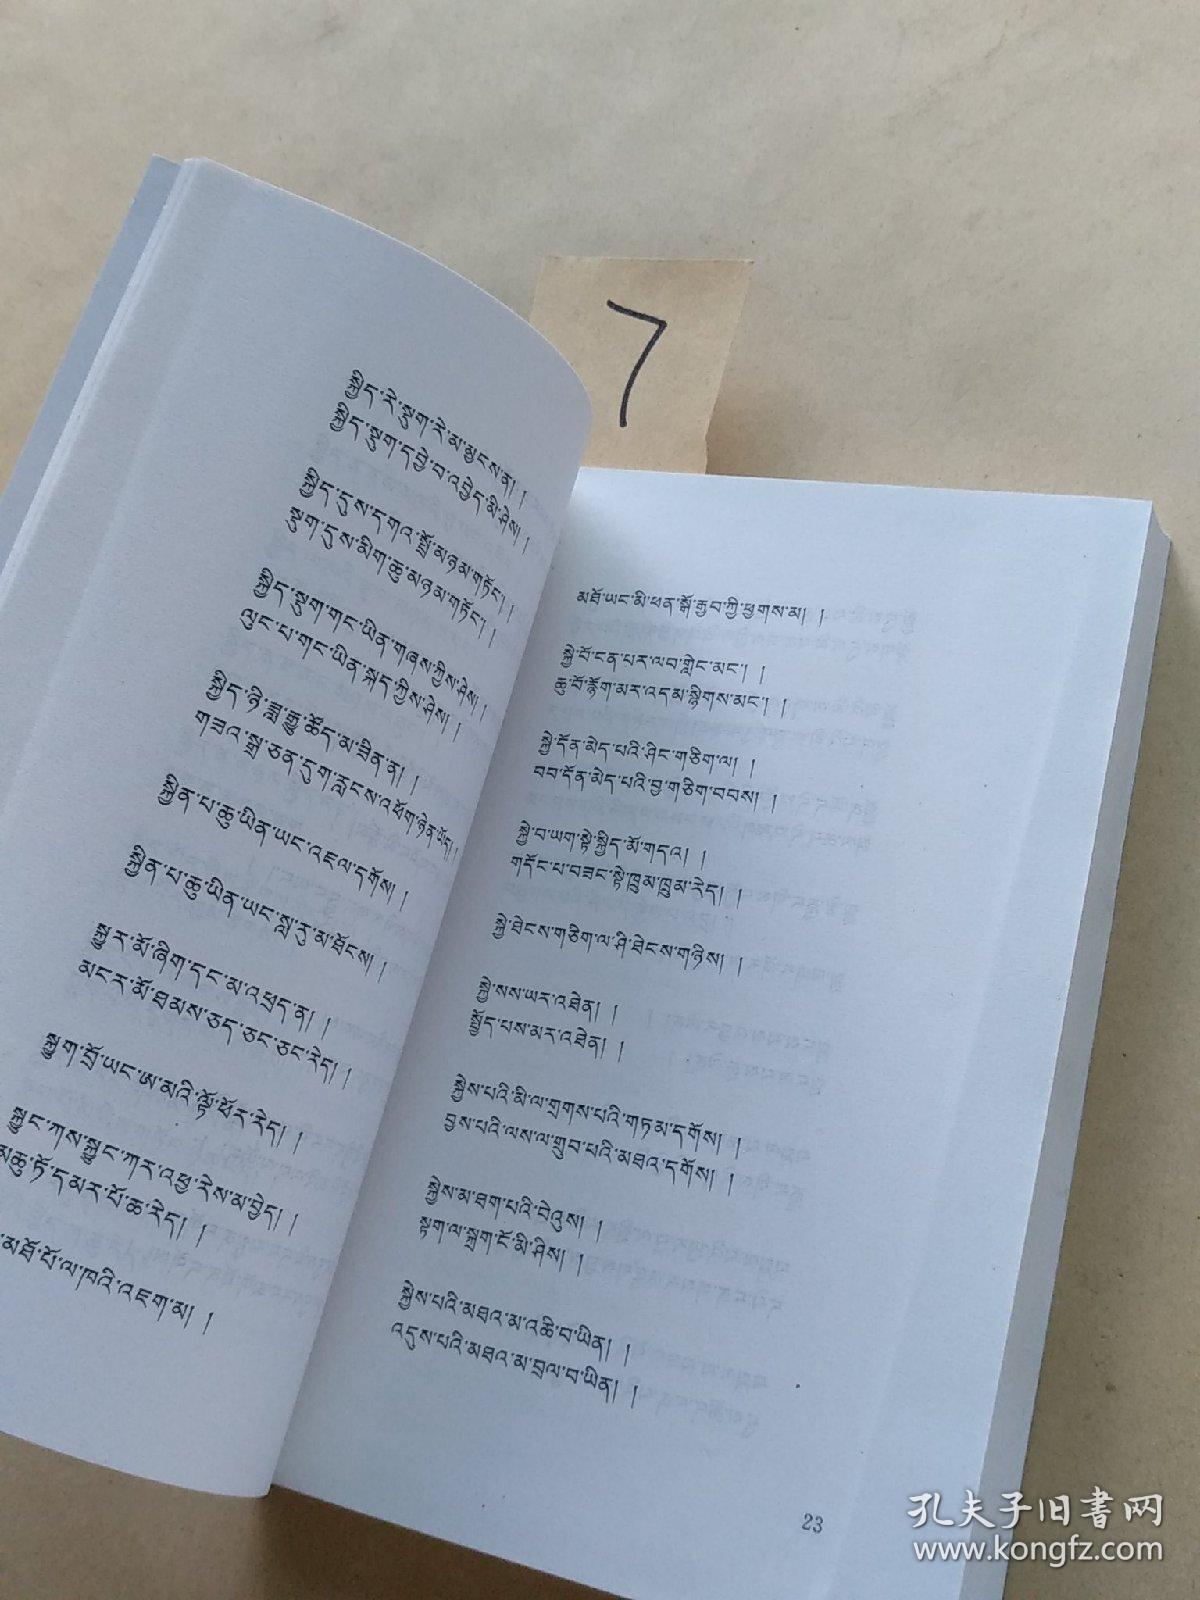 7
སྐྱིད་རེ་སྡུག་རེ་མ་མྱངས་ན། །
སྐྱིད་སྡུག་དབྱེ་བ་འབྱེད་མི་ཤེས། །
སྐྱིད་དུས་དགའ་སྤྲོ་མཉམ་གཏོང་། །
སྡུག་དུས་མིག་ཆུ་མཉམ་གཏོང་། །
སྐྱིད་སྡུག་གང་ཡིན་གཞས་ཀྱིས་ཤེས། །
ལུང་པ་གང་ཡིན་སྐད་ཀྱིས་ཤེས། །
སྐྱིད་ཉི་ཟླ་རྒྱུ་ཚོད་མ་ཟིན་ན། །
གཟའ་སྒྲ་ཅན་དུག་རླངས་འཕོག་ཉེན་ཡོད། །
སྐྱིན་པ་ཆུ་ཡིན་ཡང་འཇལ་དགོས། །
སྐྱིན་པ་ཆུ་ཡིན་ཡང་སླ་རུ་མ་ཐོངས། །
སྐྱུར་མོ་ཞིག་དང་མ་འཕྲད་ན། །
མངར་མོ་ཐམས་ཅད་ཅང་ཅང་རེད། །
སྐྱུག་བྲོ་ཡང་ཨ་མའི་ལྟོ་ཕོར་རེད། །
སྐྱུང་ཀས་སྐྱུང་ཀར་འཕྱ་རེས་མ་བྱེད། །
མཆུ་ཏོ་དམར་པོ་ཆ་རེད། །
མཐོ་པོ་ལ་ཁའི་འཇག་མ། །
མཐོ་ཡང་མི་ཕན་སྒོ་རྒྱབ་ཀྱི་ཕྱགས་མ། །
སྐྱེ་བོ་ངན་པར་ལབ་གླེང་མང་། །
ཆུ་བོ་རྙོག་མར་འདམ་སྙིགས་མང་། །
སྐྱེ་དོན་མེད་པའི་ཤིང་གཅིག་ལ། །
བབ་དོན་མེད་པའི་བྱ་གཅིག་བབས། །
སྐྱེ་བ་ཡག་སྟེ་སྐྱིད་མོ་གདའ། །
གདོང་པ་བཟང་སྟེ་ཁྲུམ་ཁྲུམ་རེད། །
སྐྱེ་ཐེངས་གཅིག་ལ་ཤི་ཐེངས་གཉིས། །
སྐྱེ་སས་ཡར་འཐེན། །
སྤྱོད་པས་མར་འཐེན། །
སྐྱེས་པའི་མི་ལ་གྲགས་པའི་གཏམ་དགོས། །
བྱས་པའི་ལས་ལ་གྲུབ་པའི་མཐའ་དགོས། །
སྐྱེས་མ་ཐག་པའི་བེའུས། །
སྟག་ལ་སྐྲག་ངོ་མི་ཤེས། །
སྐྱེས་པའི་མཐའ་མ་འཆི་བ་ཡིན། །
འདུས་པའི་མཐའ་མ་བྲལ་བ་ཡིན། །
23
孔夫子旧书网
www.kongfz.com